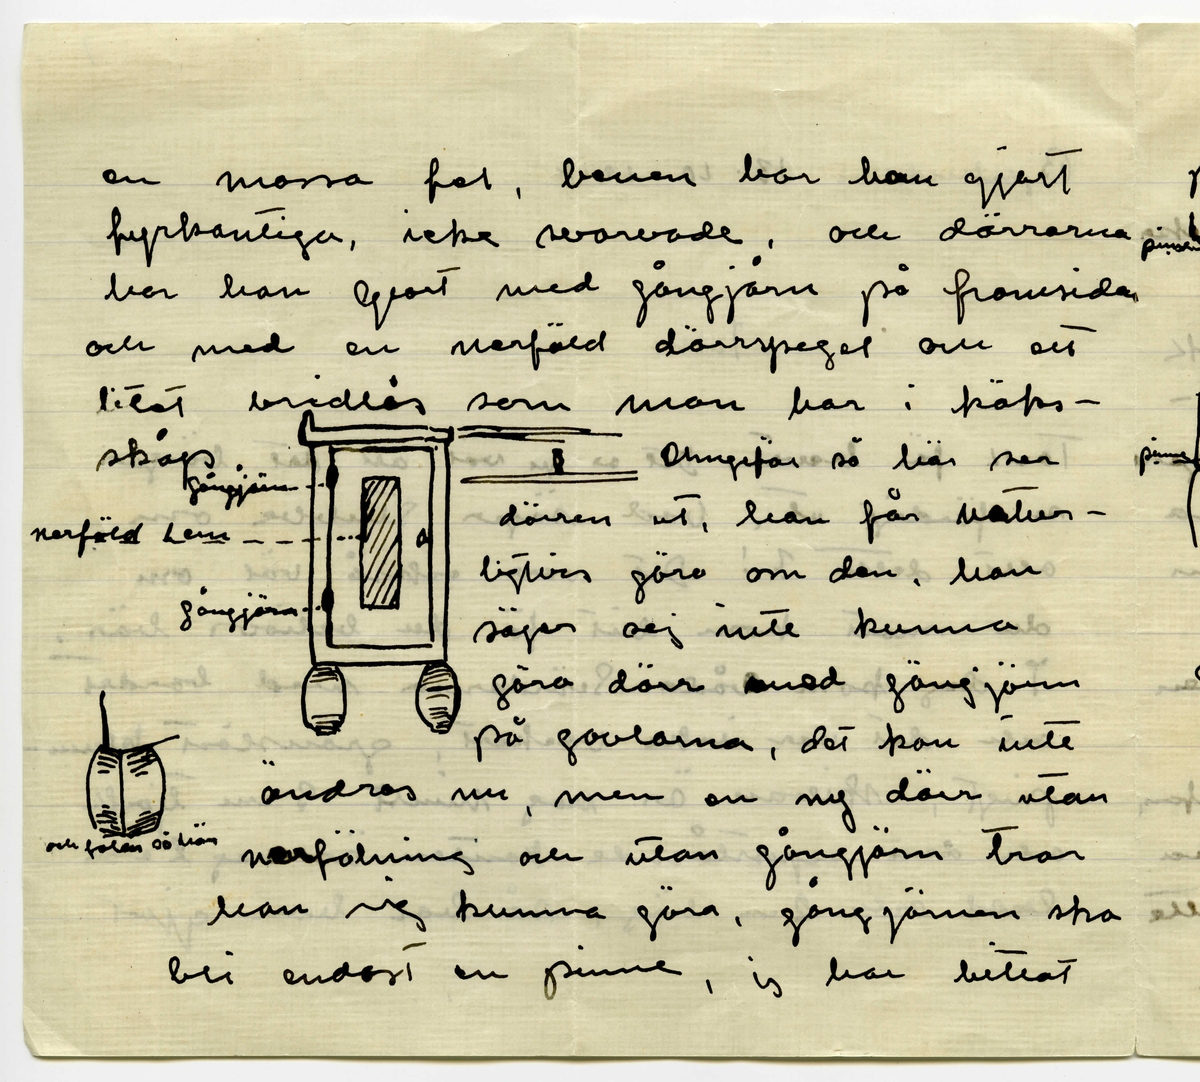 en massa fel, benen har han gjort
fyrkantiga, icke svarvade, och dörrarna
har han gjort med gångjärn på framsidan
och med en nerfäld dörrspegel och ett
litet vridlås som man har i köks-
skåp.
gångjärn
nerfäld Lem
gångjärn
Ungefär så här ser
dörren ut, han får natur-
ligtvis göra om den, han
säger sej inte kunna
göra dörr med gångjärn
på gavlarna, det kan inte
ändras nu, men en ny dörr utan
nerfälning och utan gångjärn tror
han sig kunna göra, gångjärnen ska
bli endast en pinne, jg har bitrat
och foten så här
pinnen
pinne